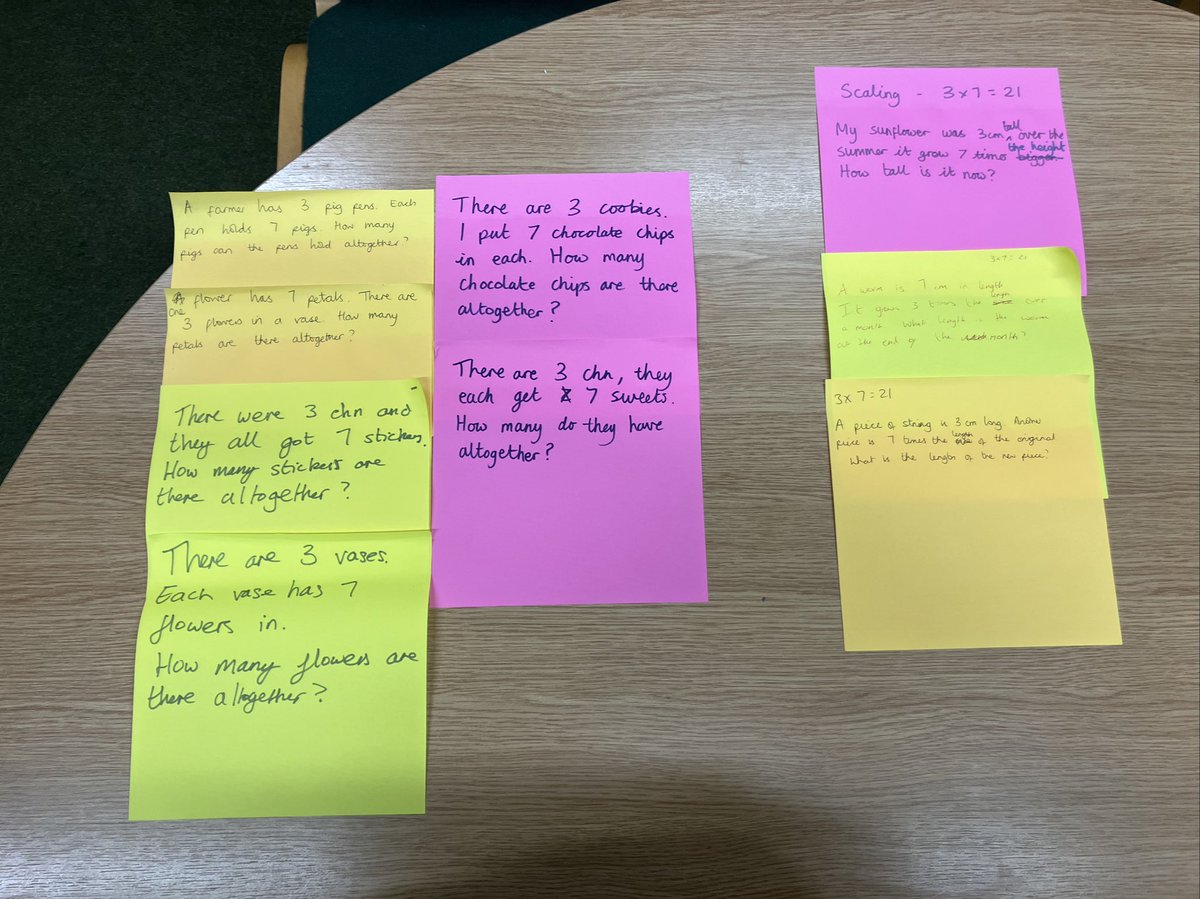 A farmer has 3 pig pens. Each
pen holds 7 pigs. How many
pigs can the pens hold altogether?
One flower has 7 petals. There are
3 flowers in a vase. How many
petals are there altogether?
There were 3 chn and
they all got 7 stickers.
How many stickers are
there altogether?
There are 3 vases.
Each vase has 7
flowers in.
How many flowers are
there altogether?
There are 3 cookies.
I put 7 chocolate chips
in each. How many
chocolate chips are there
altogether?
There are 3 chn, they
each get 7 sweets.
How many do they have
altogether?
Scaling - 3 x 7 = 21
My sunflower was 3cm tall over the
summer it grew 7 times the height
How tall is it now?
3x7=21
A worm is 7 cm in length
It grows 3 times the length over
a month. What length is the worm
at the end of the month?
3x 7=21
A piece of string is 3 cm long. Another
piece is 7 times the length of the original
What is the length of the new piece?